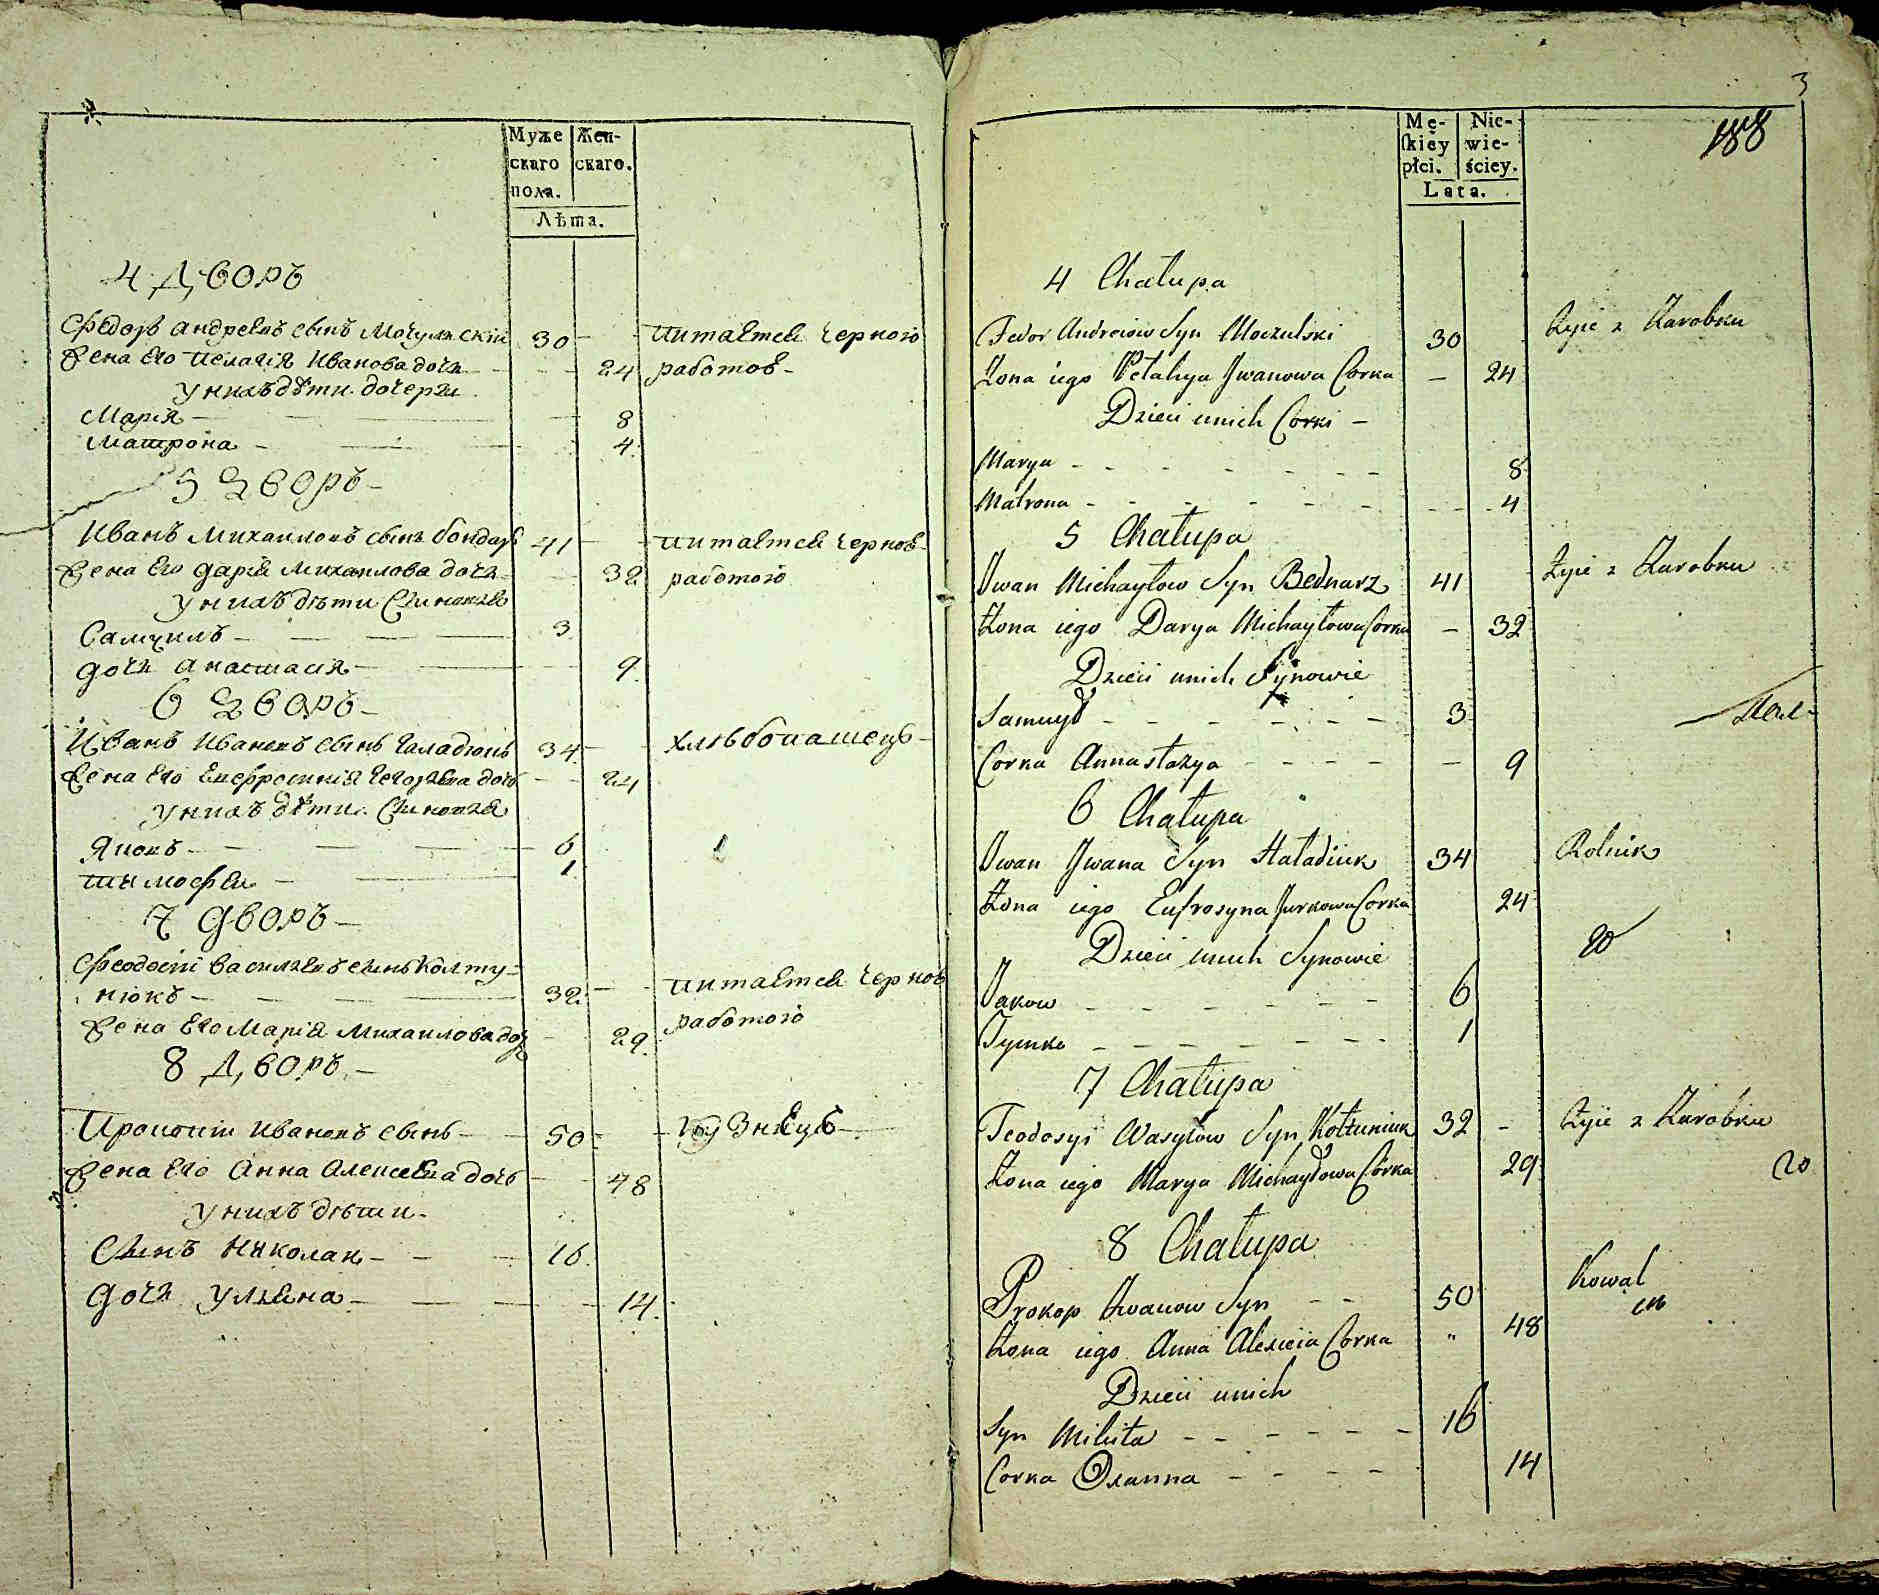 Муже
скаго
пола.
Жен-
скаго.
Лѣта.
4 Дворъ
Федоръ Андреевъ сынъ Мочульскій 30 питается черною
Жена Его Пелагія Иванова дочь 24 работою
У нихъ дѣти дочери
Марія 8
Матрона 4
5 Дворъ
Иванъ Михаиловъ сынъ бондаръ 41 питается черною
Жена Его Дарія Михаилова дочь 32 работою
У нихъ дѣти Сыновья
Самуилъ 3
дочь Анастасія 9
6 Дворъ
Иванъ Ивановъ сынъ Галадюкъ 34 хлѣбопашецъ
Жена Его Евфросинія дочь 24
У нихъ дѣти Сыновья
Яковъ 6
Тимофей 1
7 Дворъ
Феодосій Васильевъ сынъ Колту-
нюкъ 32 питается черною
Жена Его Марія Михаилова доч 29 работою
8 Дворъ
Прокопій Ивановъ сынъ 50 Кузнецъ
Жена Его Анна Алексеева дочь 48
У нихъ дѣти
Сынъ Николай 16
Дочь Ульяна 14
3
188
Mę-
skiey
płci.
Nie-
wie-
ściey.
Lata.
4 Chałupa
Fedor Andreiow Syn Moczulski 30 Żyie z Zarobku
Żona iego Pelahya Jwanowa Corka 24
Dzieci unich Corki
Marya 8
Matrona 4
5 Chałupa
Jwan Michayłow Syn Bednarz 41 Żyie z Zarobku
Żona iego Darya Michayłowa Corka 32
Dzieci unich Synowie
Samuył 3
Corka Annastazya 9
6 Chałupa
Jwan Jwana Syn Haładiuk 34 Rolnik
Żona iego Eufrosyna Jurkowa Corka 24
Dzieci unich Synowie
Jakow 6
Tymko 1
7 Chałupa
Teodosyi Wasylow Syn Kołtuniuk 32 Żyie z Zarobku
Żona iego Marya Michayłowa Córka 29
8 Chałupa
Prokop Iwanow Syn 50 Kowal
Żona iego Anna Alexieia Corka 48
Dzieci unich
Syn Mikita 16
Corka Oxanna 14